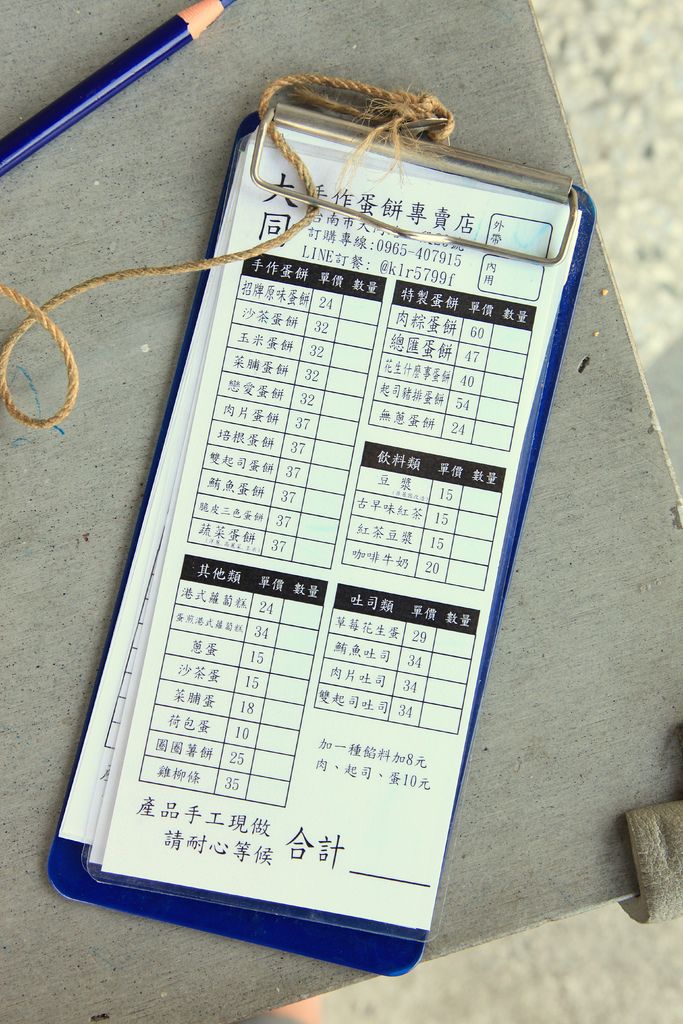 大同
手作蛋餅專賣店
台南市大
訂購專線:0965-407915
LINE訂餐: @klr5799f
外帶
內用
手作蛋餅 單價 數量
招牌原味蛋餅 24
沙茶蛋餅 32
玉米蛋餅 32
菜脯蛋餅 32
戀愛蛋餅 32
肉片蛋餅 37
培根蛋餅 37
雙起司蛋餅 37
鮪魚蛋餅 37
脆皮三色蛋餅 37
蔬菜蛋餅 37
特製蛋餅 單價 數量
肉粽蛋餅 60
總匯蛋餅 47
花生什麼事蛋餅 40
起司豬排蛋餅 54
無蔥蛋餅 24
飲料類 單價 數量
豆漿 15
古早味紅茶 15
紅茶豆漿 15
咖啡牛奶 20
其他類 單價 數量
港式蘿蔔糕 24
蛋煎港式蘿蔔糕 34
蔥蛋 15
沙茶蛋 15
菜脯蛋 18
荷包蛋 10
圈圈薯餅 25
雞柳條 35
吐司類 單價 數量
草莓花生蛋 29
鮪魚吐司 34
肉片吐司 34
雙起司吐司 34
加一種餡料加8元
肉、起司、蛋10元
產品手工現做
請耐心等候
合計